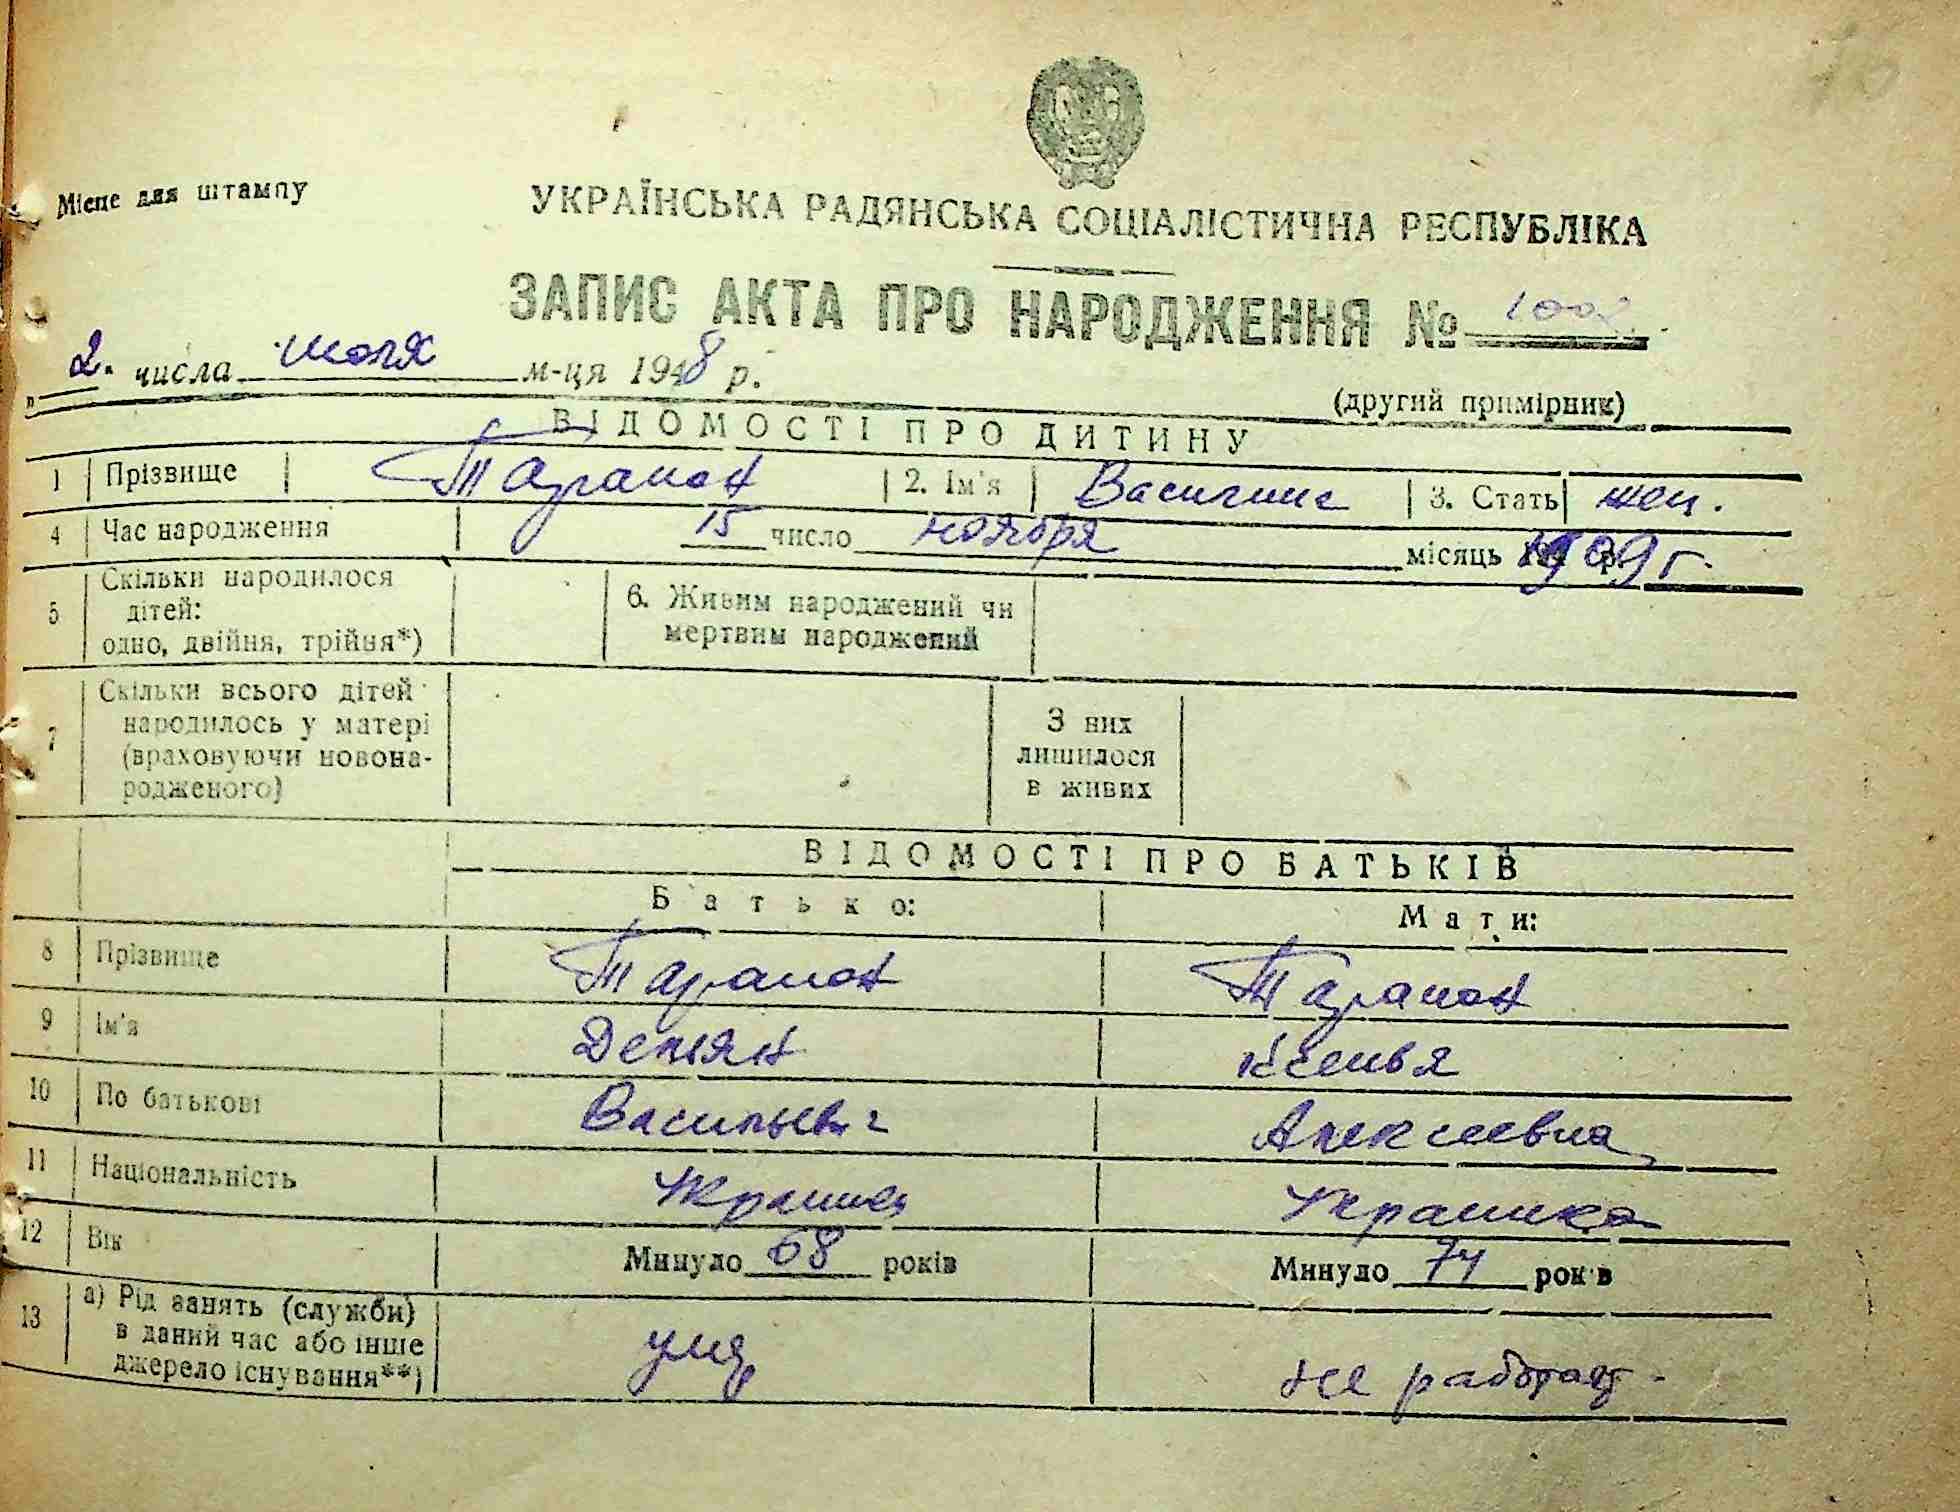 Місце для штампу
УКРАЇНСЬКА РАДЯНСЬКА СОЦІАЛІСТИЧНА РЕСПУБЛІКА
ЗАПИС АКТА ПРО НАРОДЖЕННЯ №
2. числа июля м-ця 1948 р.
(другий примірник)
ВІДОМОСТІ ПРО ДИТИНУ
1 Прізвище 2. Ім'я 3. Стать жен.
4 Час народження 15 число ноября місяць 1909 г.
5 Скільки народилося дітей: одно, двійня, трійня*) 6. Живим народжений чи мертвим народжений
7 Скільки всього дітей народилось у матері (враховуючи новона-родженого) З них лишилося в живих
ВІДОМОСТІ ПРО БАТЬКІВ
Батько: Мати:
8 Прізвище
9 Ім'я Демьян Ксенья
10 По батькові Васильевич Алексеевна
11 Національність Украинец Украинка
12 Вік Минуло 68 років Минуло 74 років
13 а) Рід занять (служби) в даний час або інше джерело існування**) умер не работает